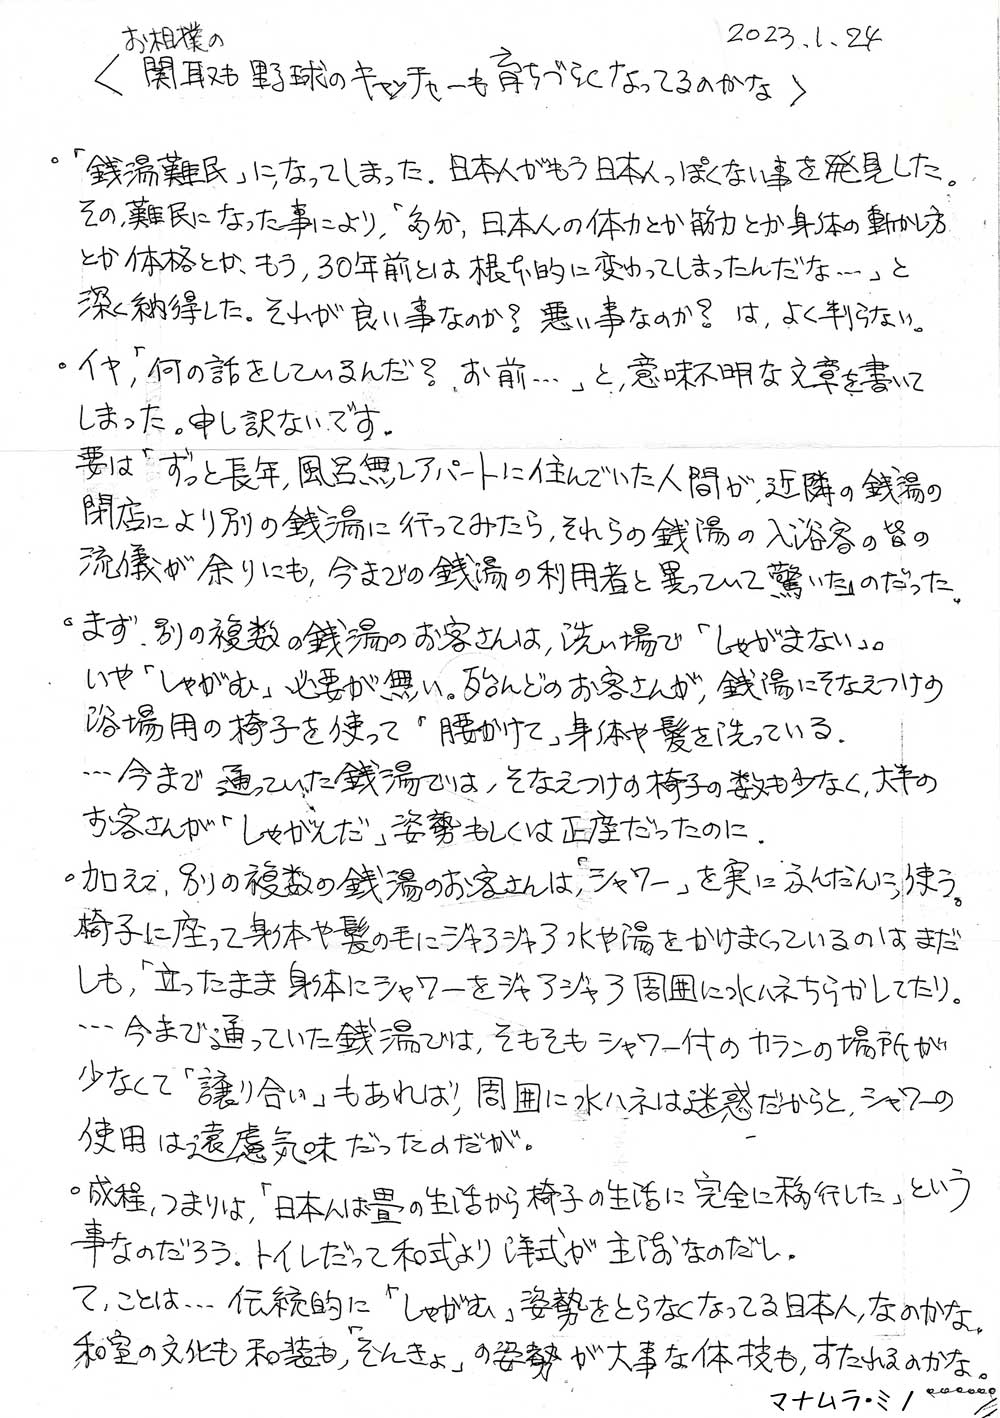 2023.1.24
お相撲の
〈関取も野球のキャッチャーも育ちづらくなってるのかな〉
。「銭湯難民」になってしまった。日本人がもう日本人っぽくない事を発見した。
その難民になった事により、「多分、日本人の体力とか筋力とか身体の動かし方
とか体格とか、もう、30年前とは根本的に変わってしまったんだな…」と
深く納得した。それが良い事なのか?悪い事なのか?は、よく判らない。
。イヤ、「何の話をしているんだ?お前…」と、意味不明な文章を書いて
しまった。申し訳ないです。
要は「ずっと長年、風呂無しアパートに住んでいた人間が、近隣の銭湯の
閉店により別の銭湯に行ってみたら、それらの銭湯の入浴客の皆の
流儀が余りにも、今までの銭湯の利用者と異っていて驚いた」のだった。
。まず、別の複数の銭湯のお客さんは、洗い場で「しゃがまない」。
いや「しゃがむ」必要が無い。殆んどのお客さんが、銭湯にそなえつけの
浴場用の椅子を使って「腰かけて」身体や髪を洗っている。
…今まで通っていた銭湯では、そなえつけの椅子の数も少なく、大半の
お客さんが「しゃがんだ」姿勢もしくは正座だったのに。
。加えて、別の複数の銭湯のお客さんは、「シャワー」を実にふんだんに使う。
椅子に座って身体や髪の毛にジャアジャア水や湯をかけまくっているのはまだ
しも、「立ったまま身体にシャワーをジャアジャア周囲に水ハネちらかしてたり。
…今まで通っていた銭湯では、そもそもシャワー付のカランの場所が
少なくて「譲り合い」もあれば、周囲に水ハネは迷惑だからと、シャワーの
使用は遠慮気味だったのだが。
。成程、つまりは、「日本人は畳の生活から椅子の生活に完全に移行した」という
事なのだろう。トイレだって和式より洋式が主流なのだし。
て、ことは…伝統的に「しゃがむ」姿勢をとらなくなってる日本人、なのかな。
和室の文化も和装も、「そんきょ」の姿勢が大事な体技も、すたれるのかな。
マナムラ・ミノ